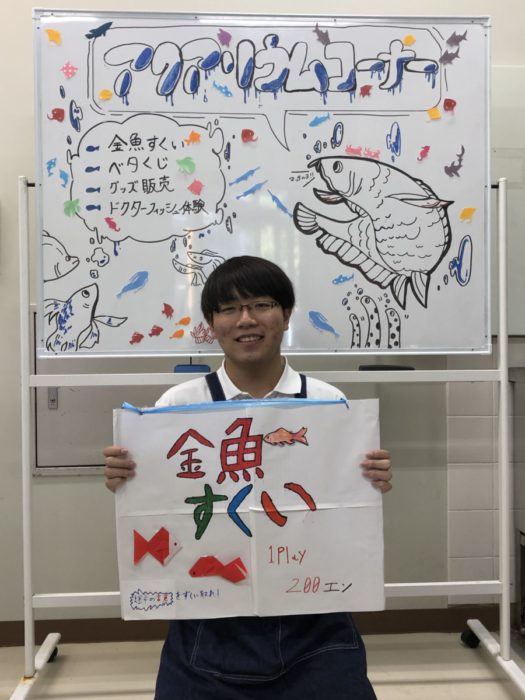 アクアリウムコーナー
金魚すくい
ベタくじ
グッズ販売
ドクターフィッシュ体験
金魚
すくい
1Play
200エン
をすくい取れ!